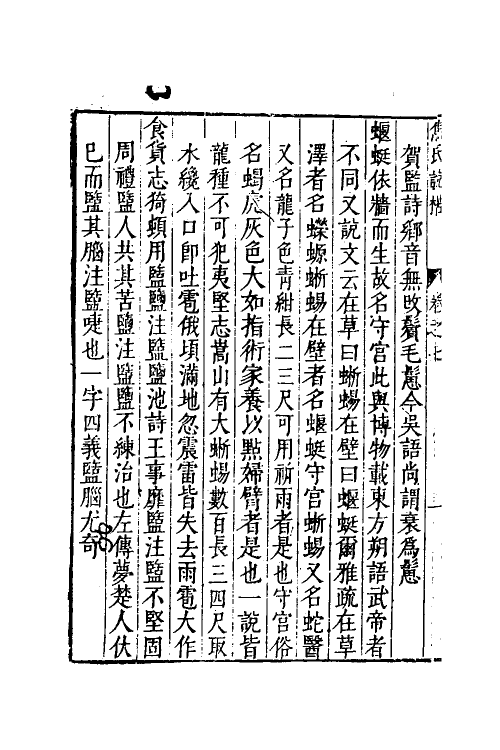 焦氏說楛 卷之七
賀監詩鄉音無改鬢毛鬆今吳語尚謂衰為鬆
蝘蜓依牆而生故名守宮此與博物載東方朔語武帝者
不同又說文云在草曰蜥蜴在壁曰蝘蜓爾雅疏在草
澤者名蠑螈蜥蜴在壁者名蝘蜓守宮蜥蜴又名蛇醫
又名龍子色青紺長二三尺可用祈雨者是也守宮俗
名蝎虎灰色大如指術家養以點婦臂者是也一說皆
龍種不可犯夷堅志嵩山有大蜥蜴數百長三四尺取
水纔入口即吐雹俄頃滿地忽震雷皆失去雨雹大作
食貨志猗頓用盬鹽注盬鹽池詩王事靡盬注盬不堅固
周禮鹽人共其苦鹽注盬鹽不練治也左傳夢楚人伏
巳而盬其腦注盬啑也一字四義盬腦尤奇